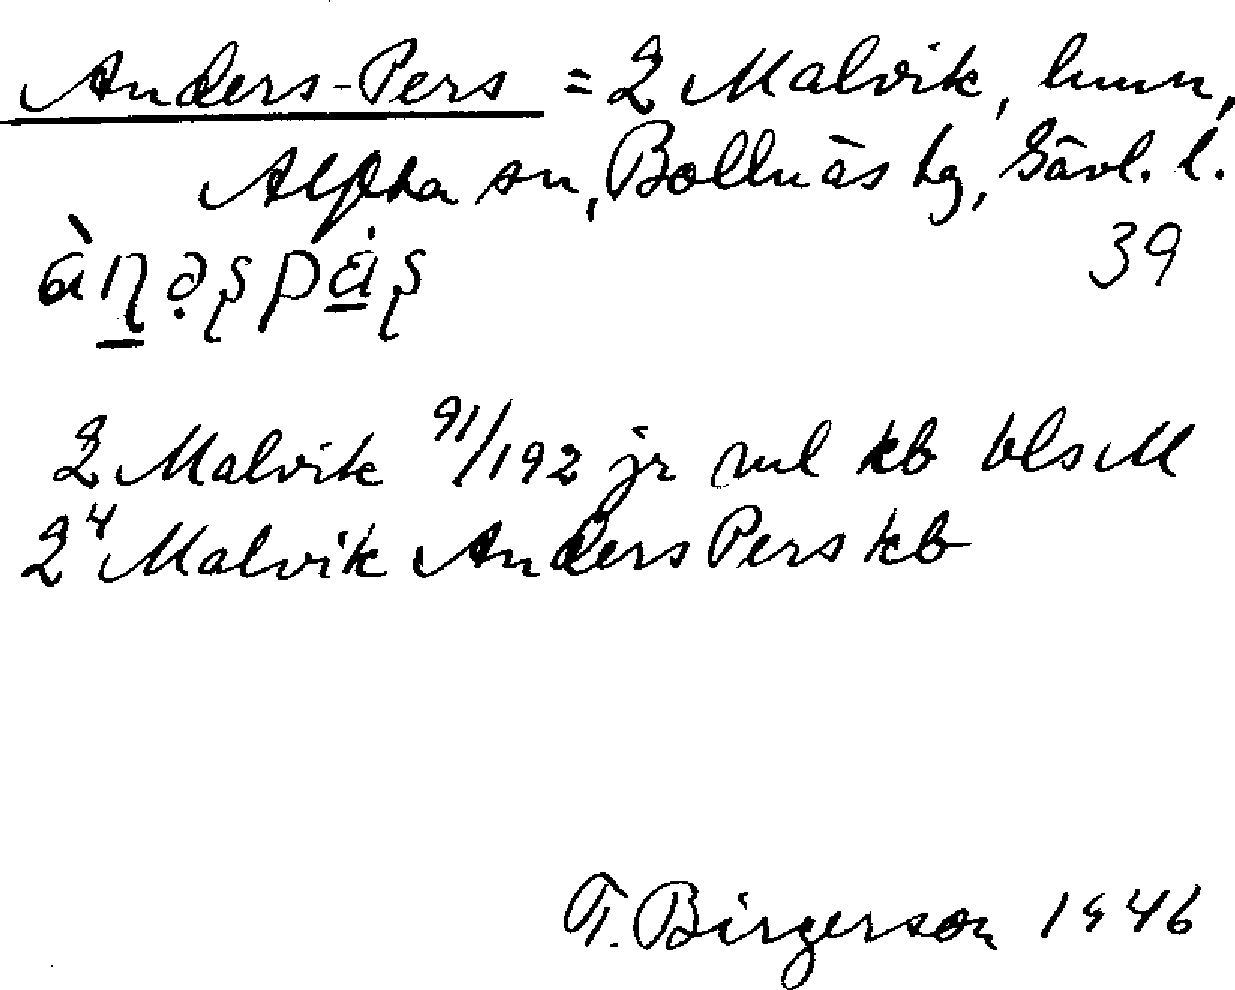 Anders-Pers = 2 Malvik, hmn,
Alfta sn, Bollnäs tg, Gävl. l.
39
2 Malvik 91/192 jr kb
2⁴ Malvik Anders Pers kb
T. Birgerson 1946